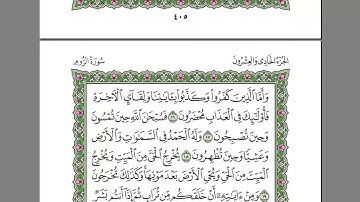 ٤٠٥
الجزء الحادي والعشرون
سورة الروم
وَأَمَّا ٱلَّذِينَ كَفَرُواْ وَكَذَّبُواْ بِـَٔايَٰتِنَا وَلِقَآيِٕ ٱلۡأٓخِرَةِ
فَأُوْلَٰٓئِكَ فِي ٱلۡعَذَابِ مُحۡضَرُونَ ١٦ فَسُبۡحَٰنَ ٱللَّهِ حِينَ تُمۡسُونَ
وَحِينَ تُصۡبِحُونَ ١٧ وَلَهُ ٱلۡحَمۡدُ فِي ٱلسَّمَٰوَٰتِ وَٱلۡأَرۡضِ
وَعَشِيّٗا وَحِينَ تُظۡهِرُونَ ١٨ يُخۡرِجُ ٱلۡحَيَّ مِنَ ٱلۡمَيِّتِ وَيُخۡرِجُ
ٱلۡمَيِّتَ مِنَ ٱلۡحَيِّ وَيُحۡيِ ٱلۡأَرۡضَ بَعۡدَ مَوۡتِهَاۚ وَكَذَٰلِكَ تُخۡرَجُونَ
١٩ وَمِنۡ ءَايَٰتِهِۦٓ أَنۡ خَلَقَكُم مِّن تُرَابٖ ثُمَّ إِذَآ أَنتُم بَشَرٞ